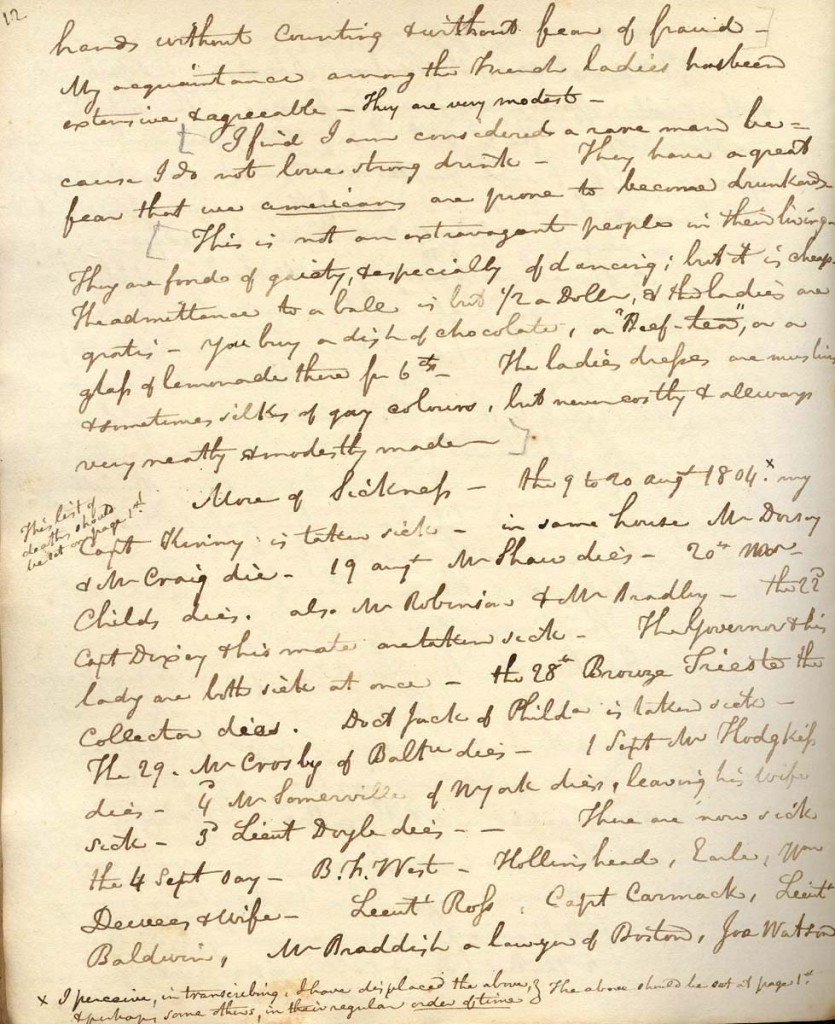 12.
hands without counting & without fear of fraud -
My acquaintance among the French ladies has been
extensive & agreeable - They are very modest -
[ I find I am considered a rare man be=
cause I do not love strong drink - They have a great
fear that we americans are prone to become drunkards
[ This is not an extravagant people in their living -
They are fond of gaiety, & especially of dancing; but it is cheap.
The admittance to a ball is but 1/2 a Dollr, & the ladies are
gratis - You buy a dish of chocolate, or "Beef-tea", or a
glass of lemonade there for 6 cts - The ladies dresses are muslins
& sometimes silks of gay colours, but never costly & allways
very neatly & modestly made ]
This list of
deaths should
be set at page 1st.
More of Sickness - the 9 to 20 augt 1804.x my
Capt Kinny is taken sick - in same house Mr Dorsey
& Mr Craig die - 19 augt Mr Shaw dies - 20th
Childs dies. also Mr Robinson & Mr Bradley - the 22d
Capt Dixey & his mate are taken sick - The Governor & his
lady are both sick at once - the 28th Browze Trieste the
Collector dies. Doct Jack of Philda is taken sick -
The 29. Mr Crosby of Balte dies - 1 Sept Mr Hodgkiss
dies - Mr Somerville of NYork dies, leaving his wife
sick - 3d Lieut Doyle dies - - There are now sick
the 4 Sept day - B. F. West - Hollinshead, Earle, Wm
Dewees & wife - Lieut Ross, Capt Carmack, Lieut
Baldwin, Mr Braddish a lawyer of Boston, Jos Watson
x I perceive, in transcribing, I have displaced the above, } The above should be set at page 1st
& perhaps some others, in their regular order of time